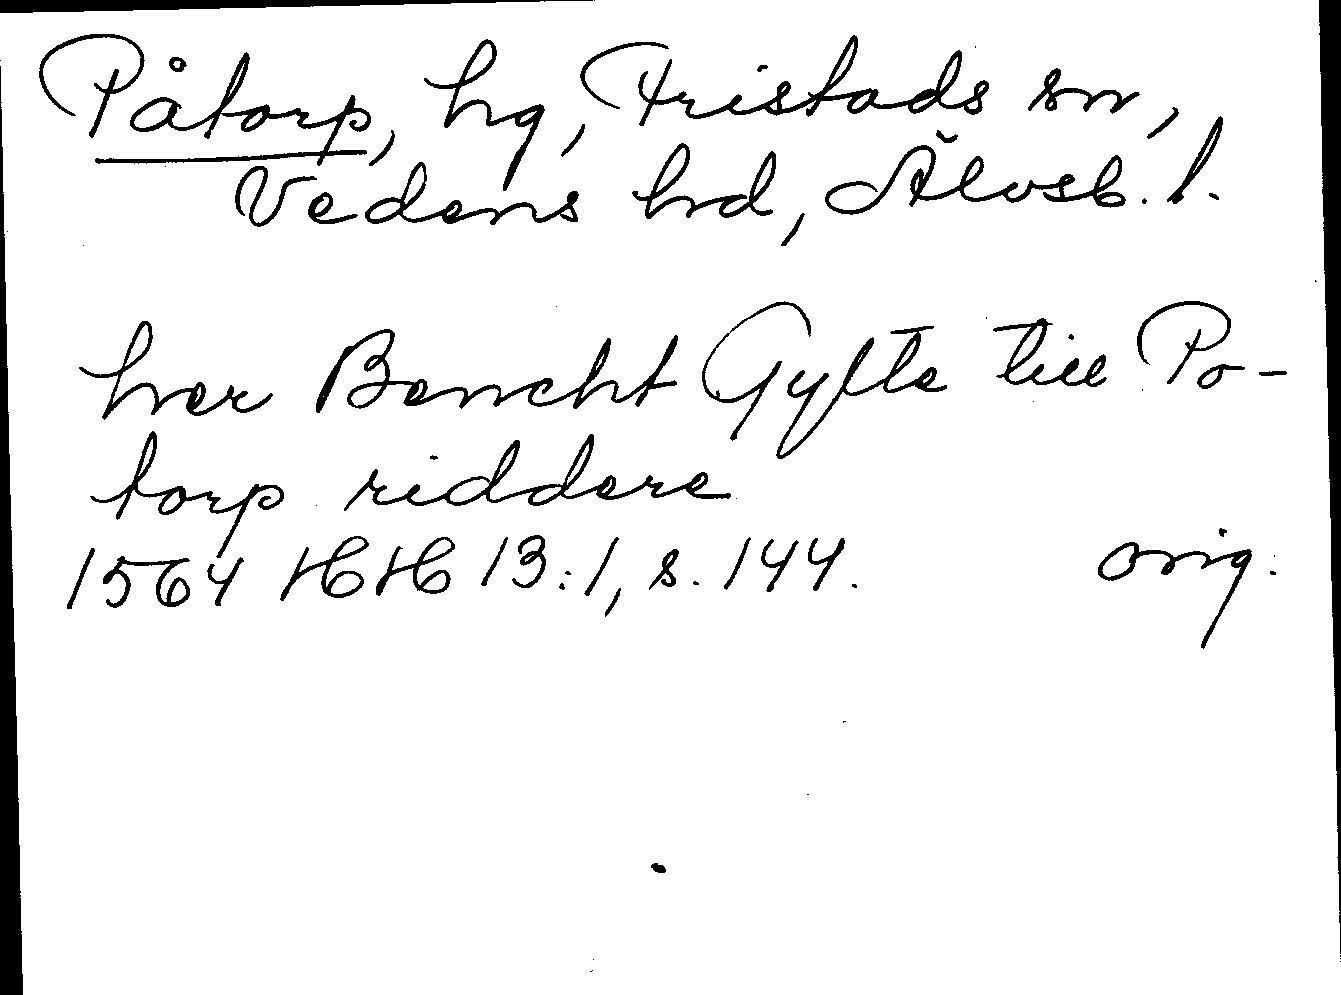 Påtorp, hg, Fristads sn,
Vedens hd, Älvsb. l.
her Bencht Gylte till Po-
torp riddere
1564 HH 13:1, s. 144. orig.